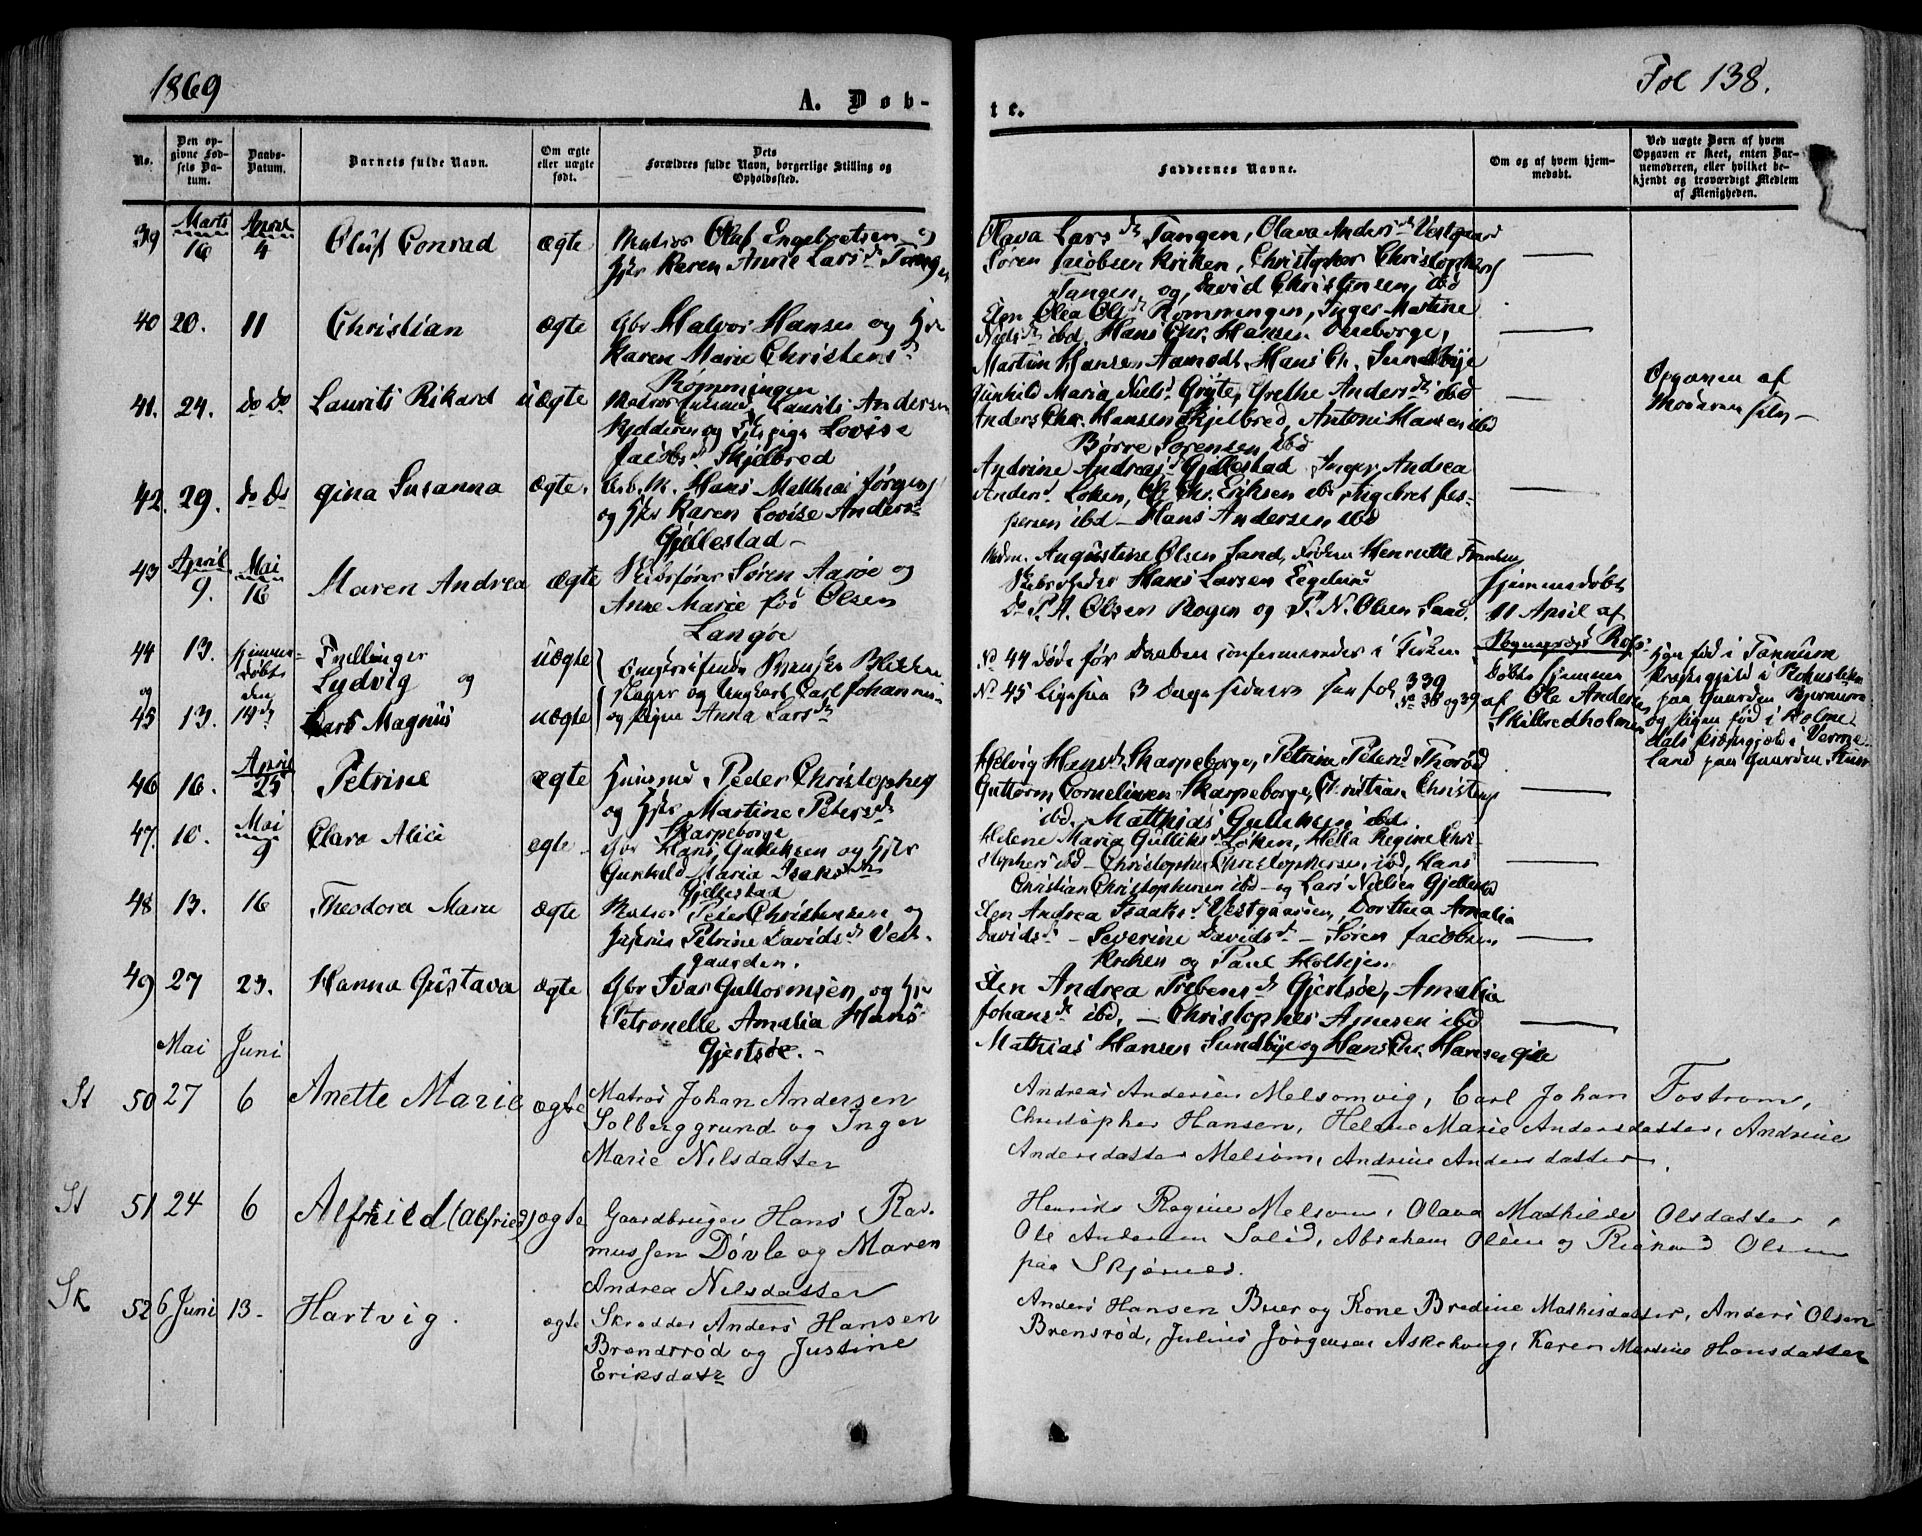 1869
Fol 138.
A. Døb-
te.
No.
Den op-
givne Fød-
sels Da-
tum.
Daabs-
Datum.
Barnets fulde Navn.
Om ægte
eller uægte
født.
Dets
Forældres fulde Navn, borgerlige Stilling og
Opholdssted.
Faddernes Navne.
Om og af hvem hjem-
medøbt.
Ved uægte Børn af hvem
Opgaven er skeet, enten Bar-
nemoderen, eller hvilket be-
kjendt og troværdigt Medlem
af Menigheden.
39 Marts 16 April 4 Oluf Conrad ægte Matros Olaf Engebretsen og
Hst Karen Anne Larsdr Tangen
Olava Larsdr Tangen, Olava Andersdr Vestgaard
Søren Jacobsen Kriken, Christopher Christophers
Tangen og David Christensen ibd
40 20. 11 Christian ægte Gbr Halvor Hansen og Hst
Karen Marie Christensdr
Rømmingen
Elen Olea Olsdr Rømmingen, Inger Martine
Nielsdr ibd. Hans Chr. Hansen
Martin Hansen Aamodt, Hans Chr. Sundbye
41. 24. do do Laurits Rikard uægte Matros Laurits Andersen
og pige Lovise
Jacobsdr Skjelbred
Gunhild Maria Nielsdr Gryte, Grethe Andersdr ibd
Anders Chr. Hansen Skjelbred, Anton Hansen ibd
Børre Sørensen ibd
Opgaven af
Moderen selv
42. 29. do do Gina Susanna ægte. Arb. M. Hans Matthias Jørgens
og Hst Karen Lovise Andersdr
Gjellestad
Andrine Andreasdr Gjellestad Inger Andrea
Andersdr Løken, Ole Chr. Eriksen ibd Engebret Jes-
persen ibd - Hans Andersen, ibd
43 April 9. Mai 16 Maren Andrea ægte Skibsfører Søren Aarøe og
Anne Marie fød Olsen
Langøe
Augustine Olsen Sand, Henriette
Hans Larsen
P. A. Olsen Rogen og P. N. Olsen Sand.
Hjemmedøbt
11 April af
Sognepræst
44 13. hjemme-
døbt
den
14de
Tvillinger
Lydvig og
uægte
og
45 13. Lars Magnus uægte
og Ungkarl Carl Johannes-
og pigen Anna Larsdr
No 44 døde før Daaben confermeredes i Kirken
No 45 ligesaa 3 Dage sidenere see fol 339
No 38 og 39
døbt hjemme
af Ole Andersen
Skilbredholmen
han fød i Tannum
paa Gaarden
og pigen fød i Holme-
dals præstegjeld i Verme-
land paa Gaarden
46 16. April 25 Petrine ægte Huusmd Peder Christophers
og Hst Martine Petersdr
Skarpeborge
Helvig Hansdr Skarpeborge, Petrine Petersdr Thorød
Guttorm Corneliussen Skarpeborge, Christian Christens
ibd. Matthias Gulliksen ibd.
47. 10. Mai 9 Clara Alice ægte Gbr Hans Gulliksen og Hst
Gunhild Maria Isaksdr
Gjellestad
Helene Maria Gulliksdr Løken, Hella Regine Chri-
stophersdr ibd - Christopher Christophersen ibd, Hans
Christian Christophersen ibd - og Lars Nielsen Gjellestad
48 13. 16 Theodora Marie ægte Matros Peter Christensen og
Hustru Petrine Davidsdr Vest-
gaarden.
Elen Andrea Isaaksdr Vestgaarden, Dorthea Amalia
Davidsdr - Severine Davidsdr - Søren Jacobsen
Kriken og Paul
49 27 23. Hanna Gustava ægte Gbr Ivar Guttormsen og Hst
Petronelle Amalia Hans-
Gjertsøe.
Elen Andrea Prebensdr Gjertsøe, Amalia
Johansdr ibd, - Christopher Arnesen ibd
Mathias Hansen Sundbye og Hans Chr. Hansen
Mai Juni
St 50 27 6 Anette Marie ægte Matros Johan Andersen
Solberggrund og Inger
Marie Nilsdatter
Andreas Andersen Melsomvig, Carl Johan Fostrom,
Christopher Hansen, Helene Marie Andersdatter, Andrine
Andersdatter Melsom, Andrine Andersdatter.
St 51 24 6 Alfhild (Alfried) ægte Gaardbruger Hans Ras-
mussen Døvle og Maren
Andrea Nilsdatter
Henrik Regine Melsom, Olava Mathilde Olsdatter,
Ole Andersen Solid, Abraham Olsen og Rickard Olsen
paa Skjørnes.
Sk 52 6 Juni 13. Hartvig. ægte Skrædder Anders Hansen
Brendsrød og Justine
Eriksdatr
Anders Hansen Buer og Kone Bredine Mathisdatter, Anders Olsen
Brensrød, Julius Jørgensen Askehoug, Karen Martine Hansdatter